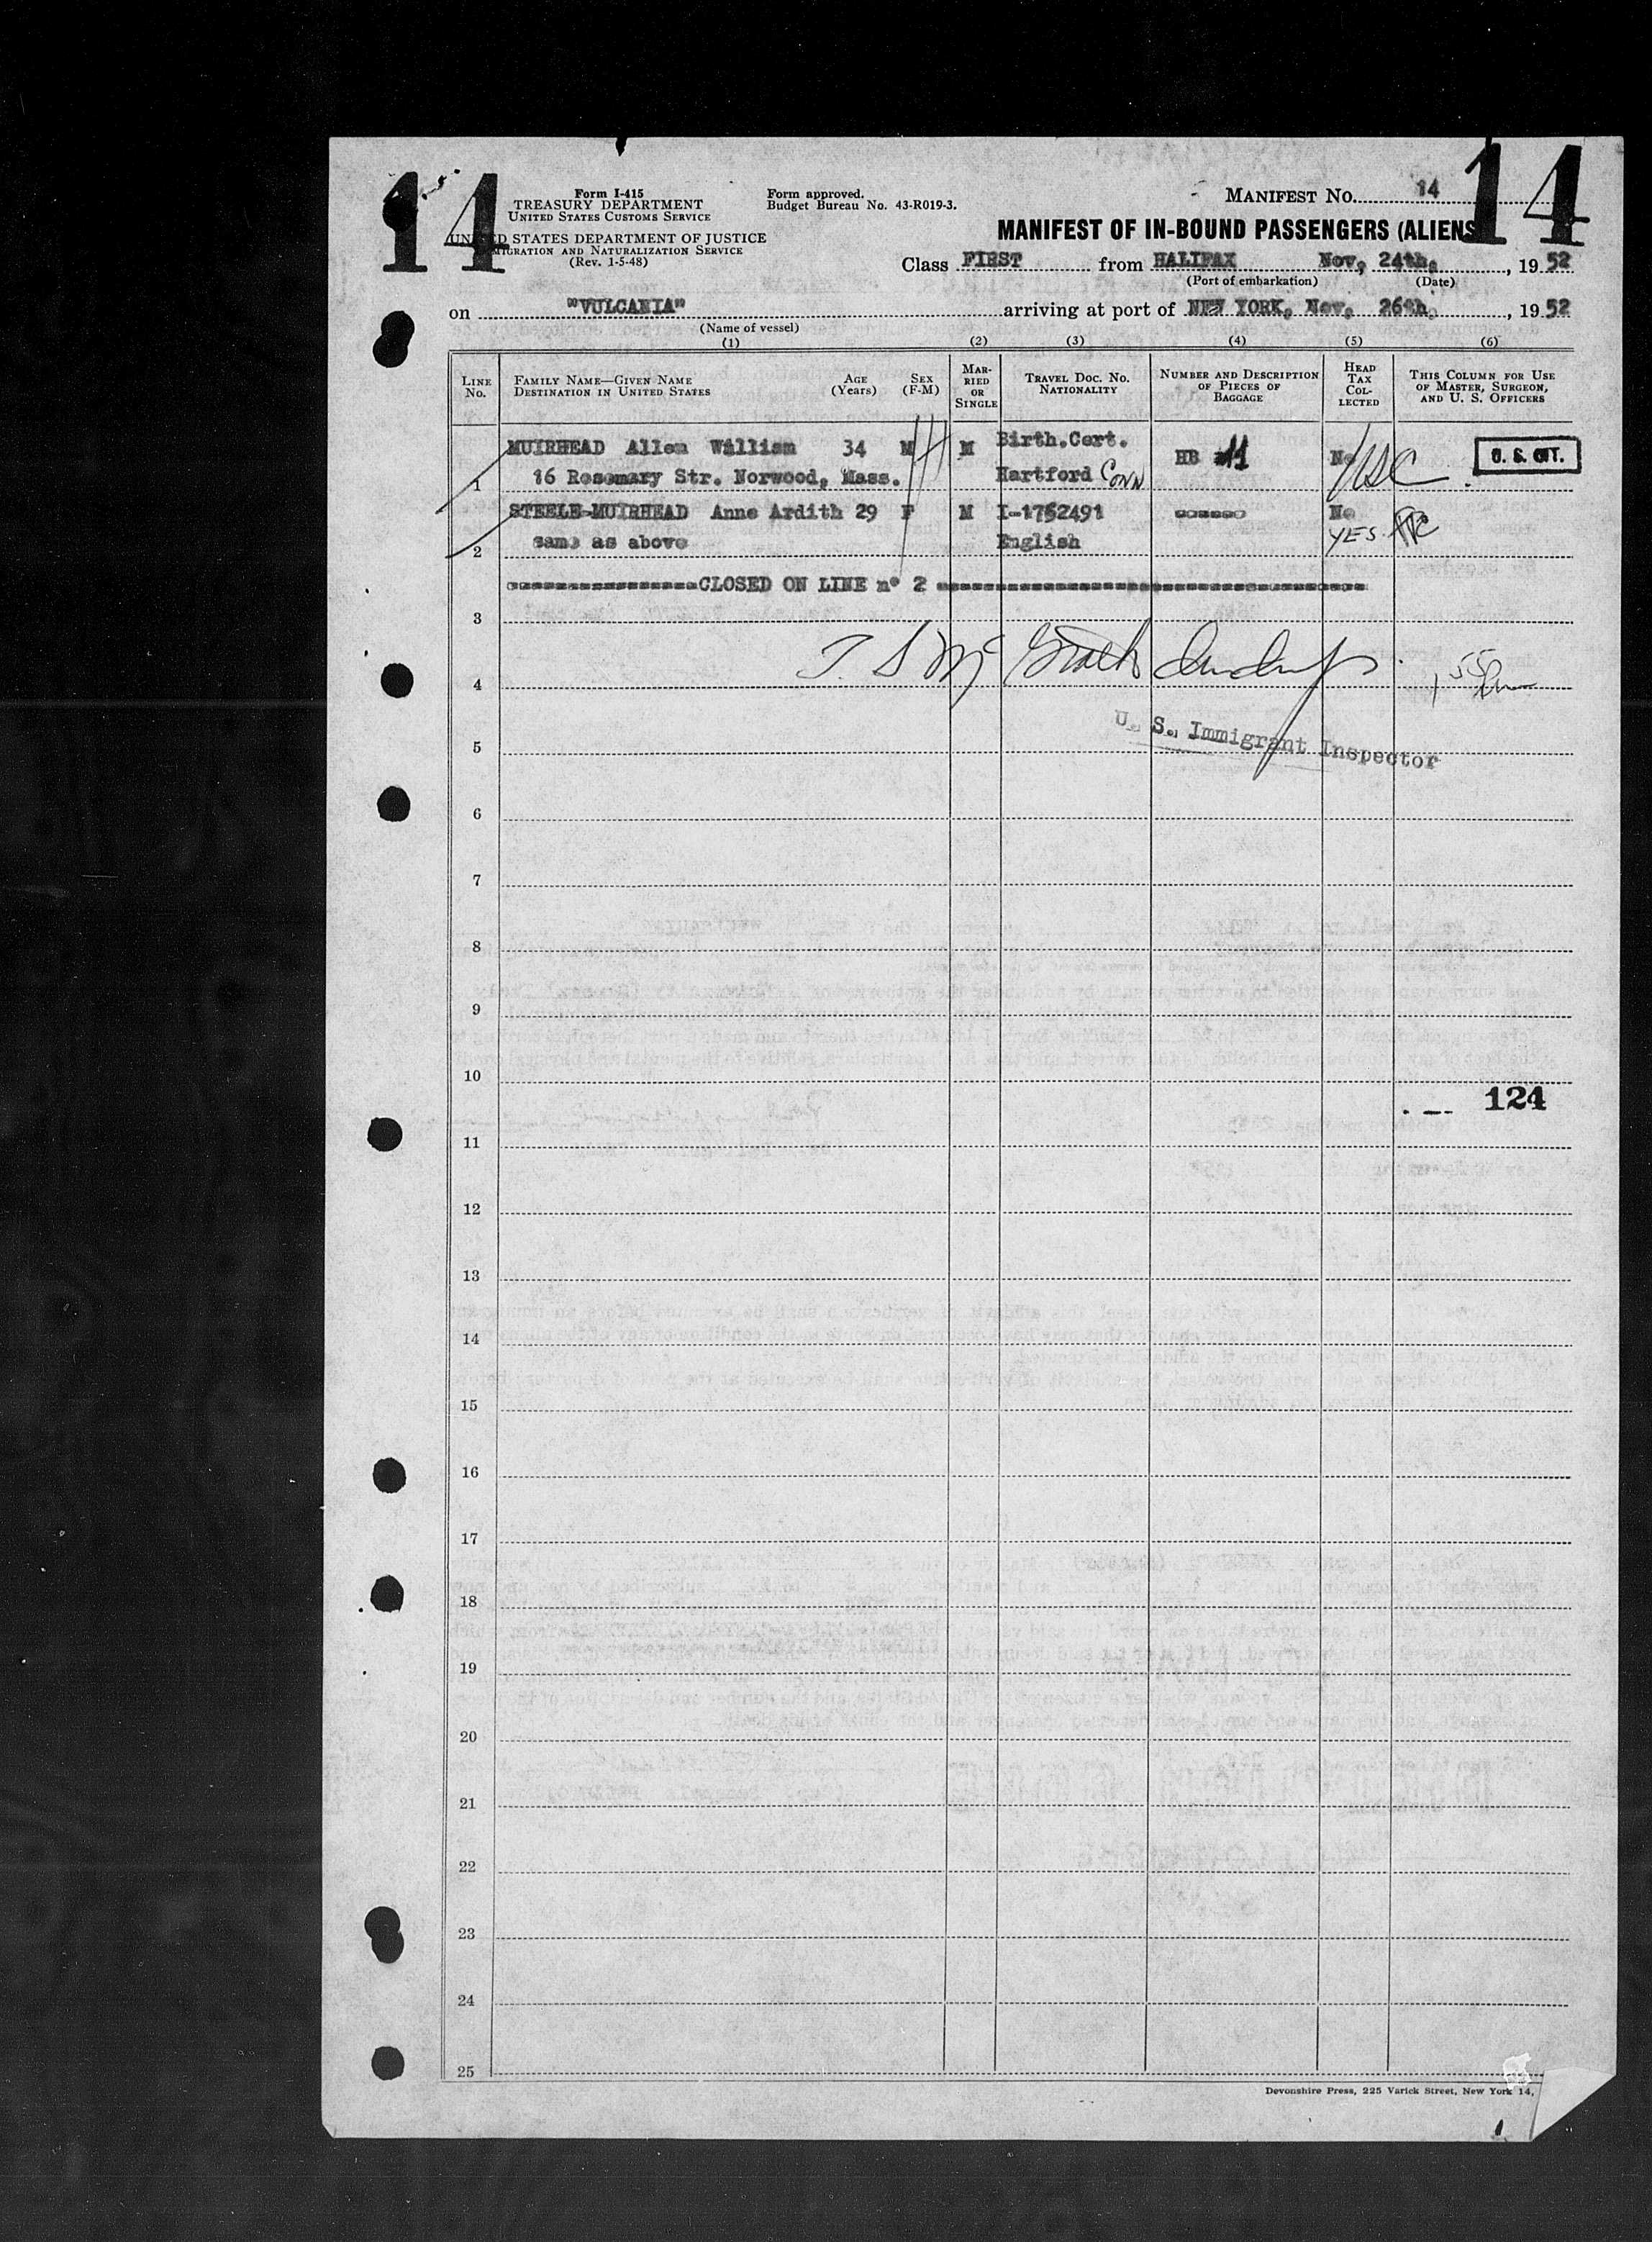 14
14
Form I-415
TREASURY DEPARTMENT
UNITED STATES CUSTOMS SERVICE
UNITED STATES DEPARTMENT OF JUSTICE
IMMIGRATION AND NATURALIZATION SERVICE
(Rev. 1-5-48)
Form approved.
Budget Bureau No. 43-R019-3.
MANIFEST No. 14
MANIFEST OF IN-BOUND PASSENGERS (ALIENS
Class FIRST from HALIFAX Nov, 24th, , 19 52
(Port of embarkation) (Date)
on "VULCANIA" arriving at port of NEW YORK, Nov, 26th, , 19 52
(Name of vessel)
(1) (2) (3) (4) (5) (6)
LINE No. FAMILY NAME—GIVEN NAME DESTINATION IN UNITED STATES AGE (Years) SEX (F-M) MARRIED OR SINGLE TRAVEL DOC. NO. NATIONALITY NUMBER AND DESCRIPTION OF PIECES OF BAGGAGE HEAD TAX COLLECTED THIS COLUMN FOR USE OF MASTER, SURGEON, AND U. S. OFFICERS
MUIRHEAD Allen William 34 M M Birth.Cert. HB 11 No USC U. S. CIT.
1 16 Rosemary Str. Norwood, Mass. Hartford Conn
STEELE-MUIRHEAD Anne Ardith 29 F M I-1752491 No
2 same as above English YES.
CLOSED ON LINE n° 2
3
4
U. S. Immigrant Inspector
5
6
7
8
9
10
124
11
12
13
14
15
16
17
18
19
20
21
22
23
24
25
Devonshire Press, 225 Varick Street, New York 14,